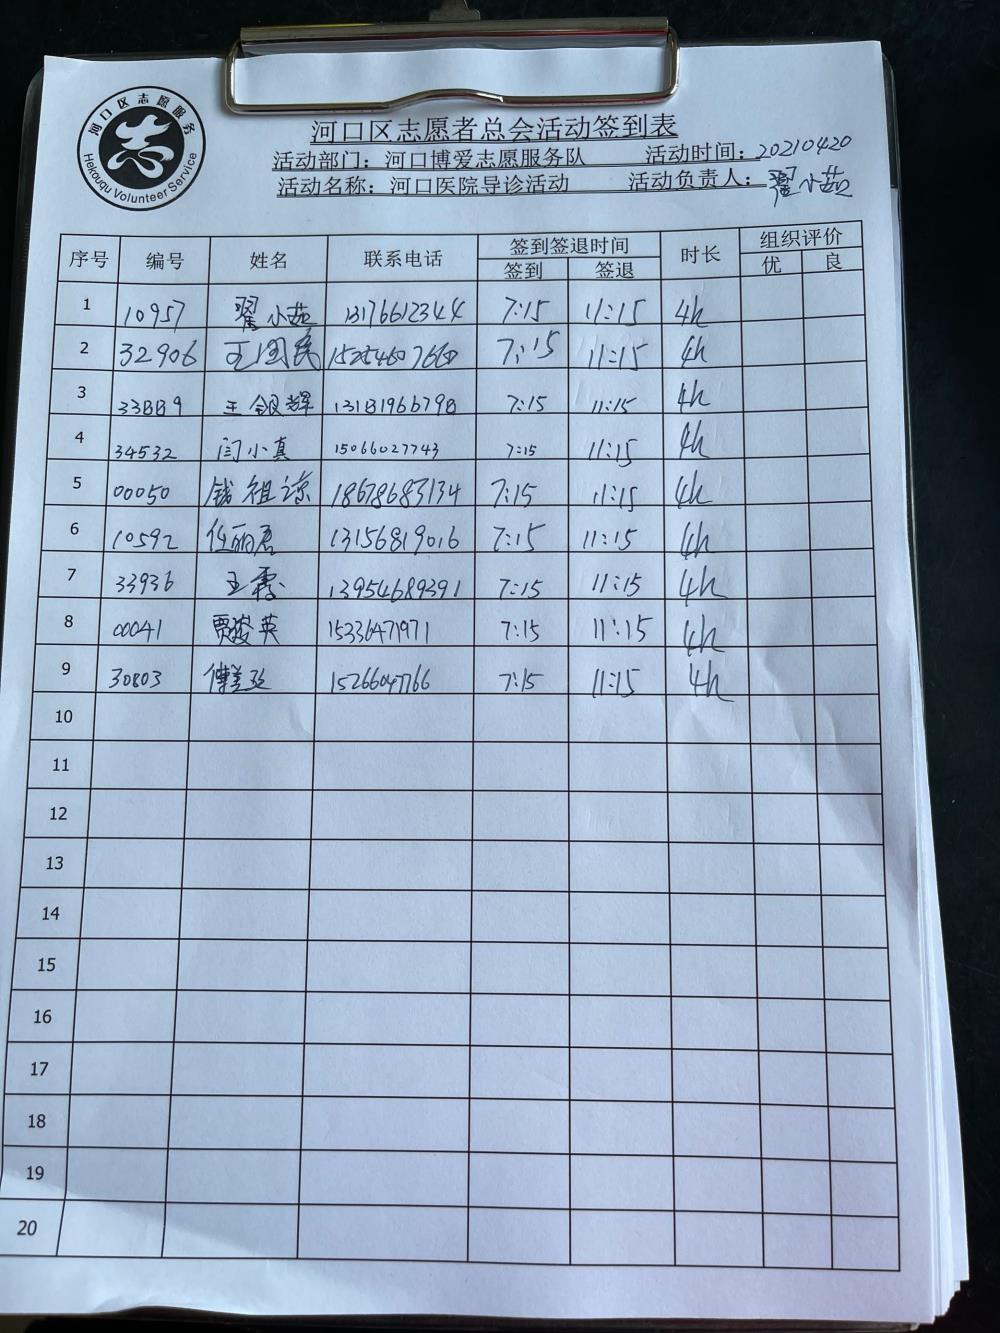 河口区志愿服务
Hekouqu Volunteer Service
河口区志愿者总会活动签到表
活动部门：河口博爱志愿服务队 活动时间：20210420
活动名称：河口医院导诊活动 活动负责人：翟小茹
序号 编号 姓名 联系电话 签到签退时间 时长 组织评价
签到 签退 优 良
1 10957 翟小茹 13176612344 7:15 11:15 4h
2 32906 王国民 15254607660 7:15 11:15 4h
3 33889 王银辉 13181966798 7:15 11:15 4h
4 34532 闫小真 15066027743 7:15 11:15 4h
5 00050 钱祖 18678683134 7:15 11:15 4h
6 10592 任丽君 13156819016 7:15 11:15 4h
7 33936 王霞 13954689391 7:15 11:15 4h
8 00041 贾俊英 15336471971 7:15 11:15 4h
9 30803 15266047766 7:15 11:15 4h
10
11
12
13
14
15
16
17
18
19
20